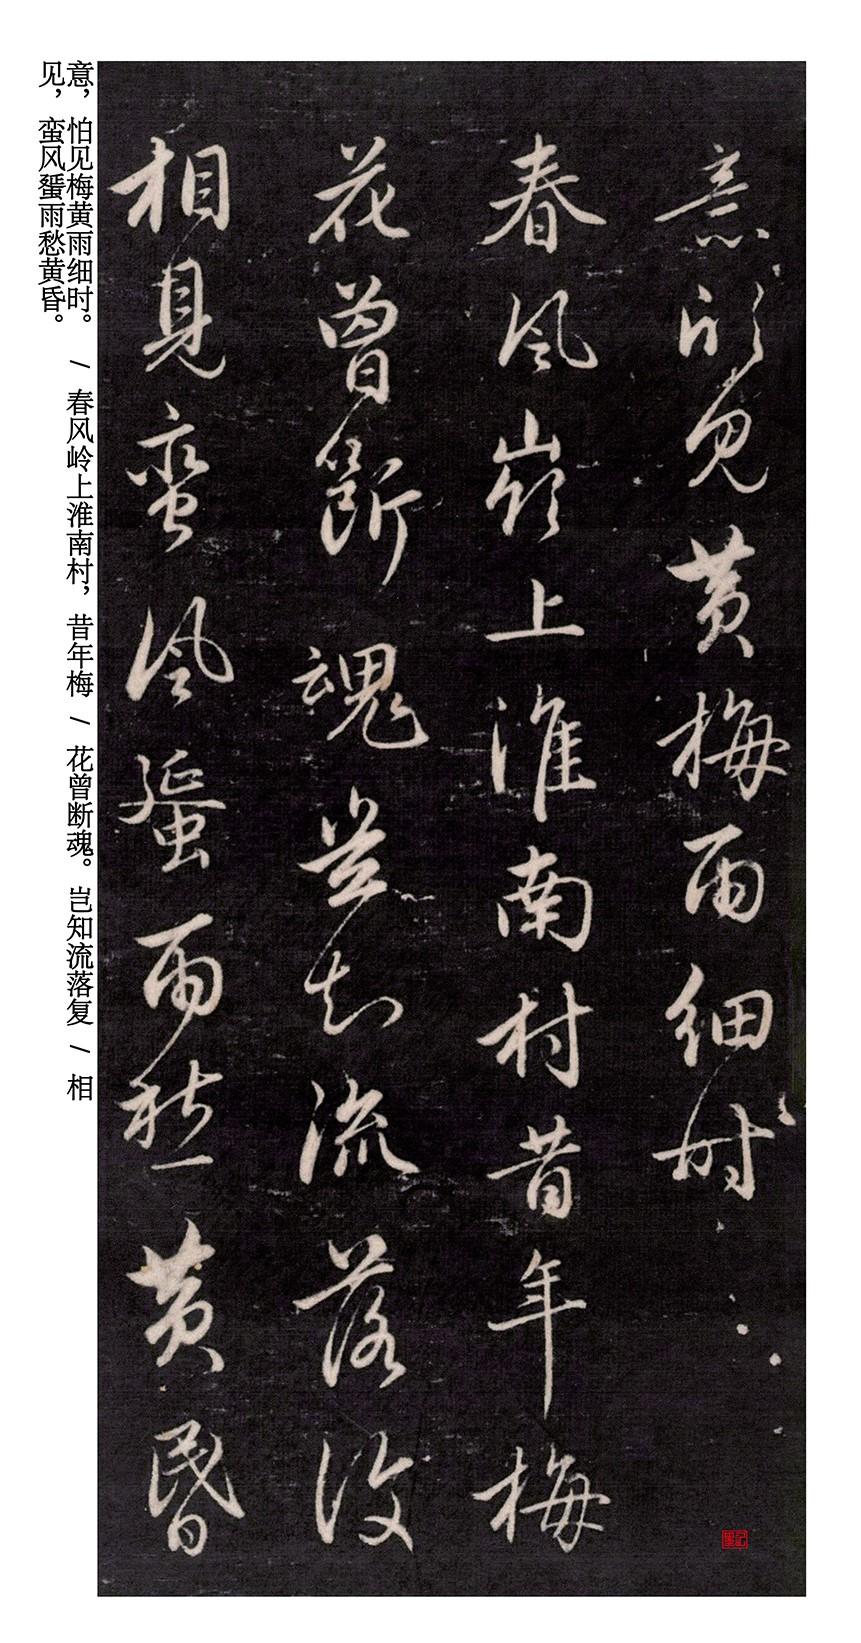 意 見黃梅雨細時
春風嶺上淮南村昔年梅
花曾斷魂豈知流落復
相見蠻風蜑雨愁黃昏
意，怕见梅黄雨细时。 / 春风岭上淮南村，昔年梅 / 花曾断魂。岂知流落复 / 相
见，蛮风蜑雨愁黄昏。